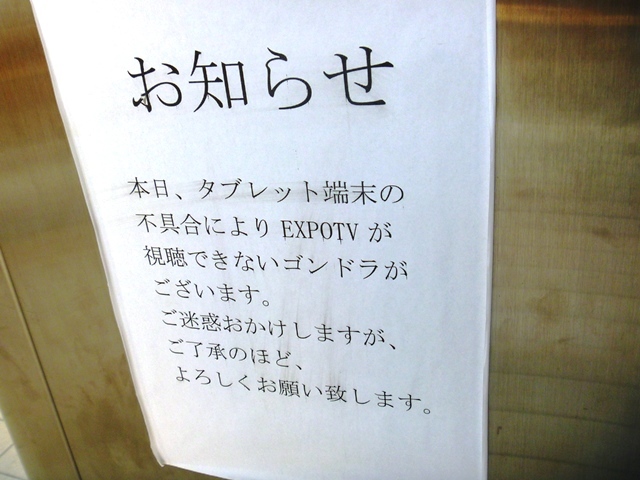 お知らせ
本日、タブレット端末の
不具合によりEXPOTVが
視聴できないゴンドラが
ございます。
ご迷惑おかけしますが、
ご了承のほど、
よろしくお願い致します。